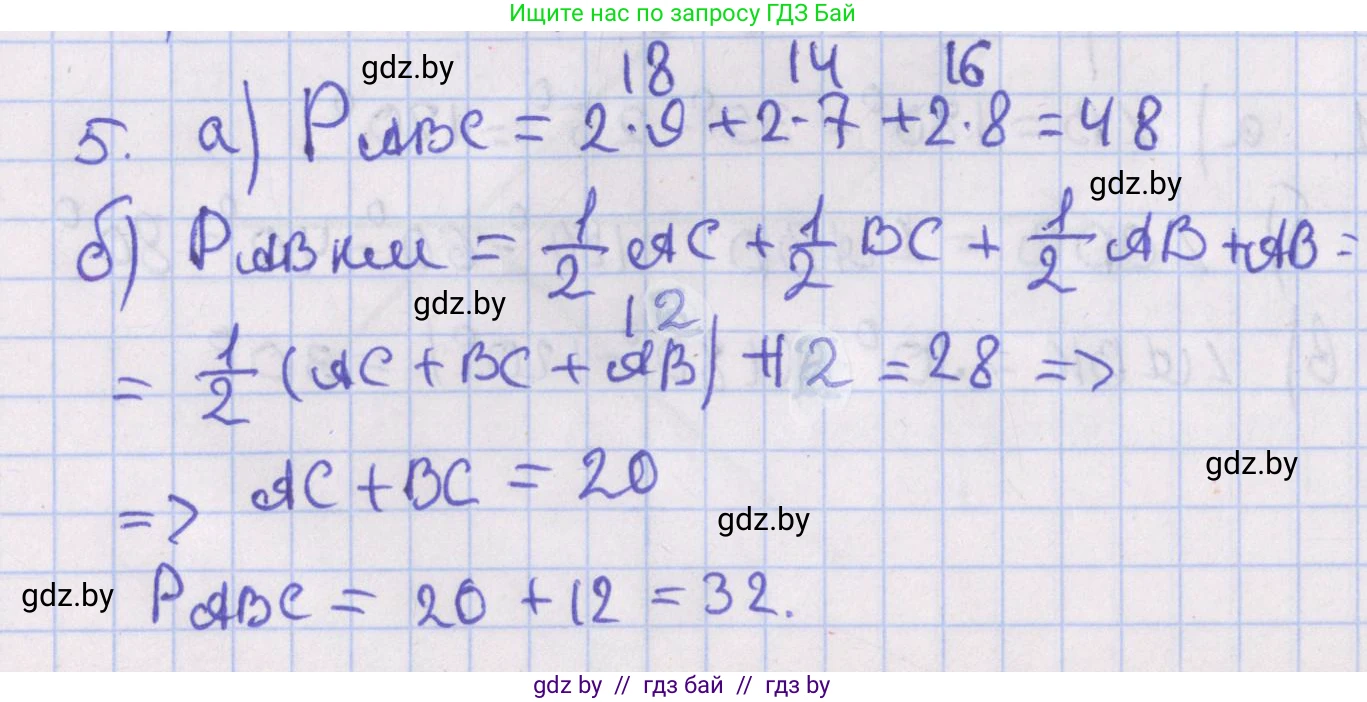 Ищите нас по запросу ГДЗ Бай
gdz.by
18 14 16
5. а) P ABC = 2·9 + 2·7 + 2·8 = 48
gdz.by
б) P ABKM = 1/2 AC + 1/2 BC + 1/2 AB + AB =
gdz.by
12
= 1/2 (AC + BC + AB) + 12 = 28 =>
gdz.by
=> AC + BC = 20
gdz.by
gdz.by
P ABC = 20 + 12 = 32.
gdz.by // гдз бай // гдз by